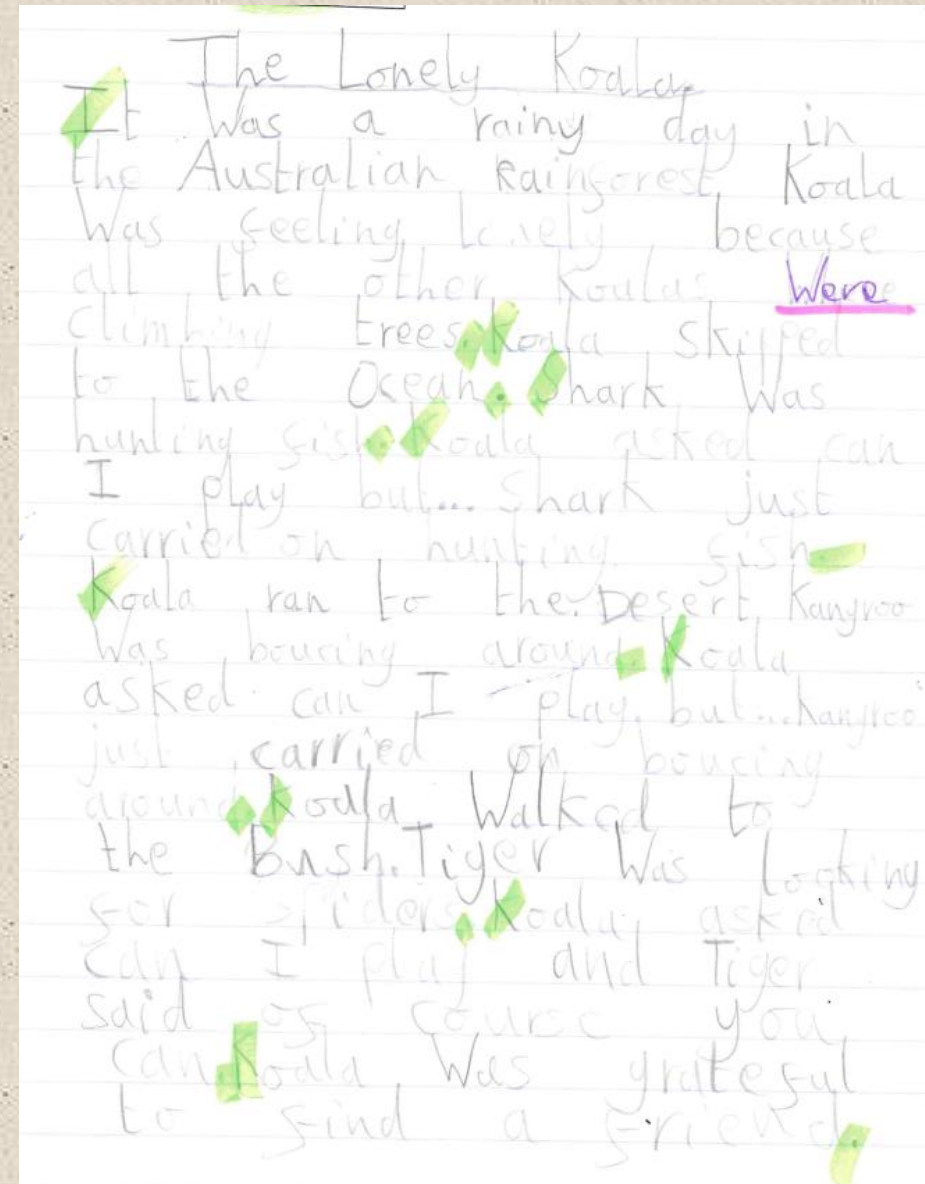 The Lonely Koala
It Was a rainy day in
the Australian Rainforest. Koala
Was feeling lonely because
all the other Koalas Were
Climbing trees. Koala skipped
to the Ocean. Shark Was
hunting fish. Koala asked can
I play but... Shark just
Carried on hunting fish.
Koala ran to the Desert. Kangroo
Was boucing around. Koala
asked can I play. but... kangroo
just carried on boucing
around. Koala Walked to
the Bush. Tiger Was looking
for spiders. Koala asked
can I play and Tiger
said of course you
can. Koala Was grateful
to find a friend.